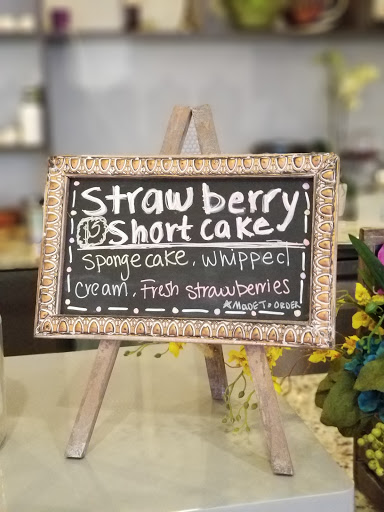 strawberry
15 Short cake
sponge cake, whipped
cream, Fresh strawberries
*MADE TO ORDER